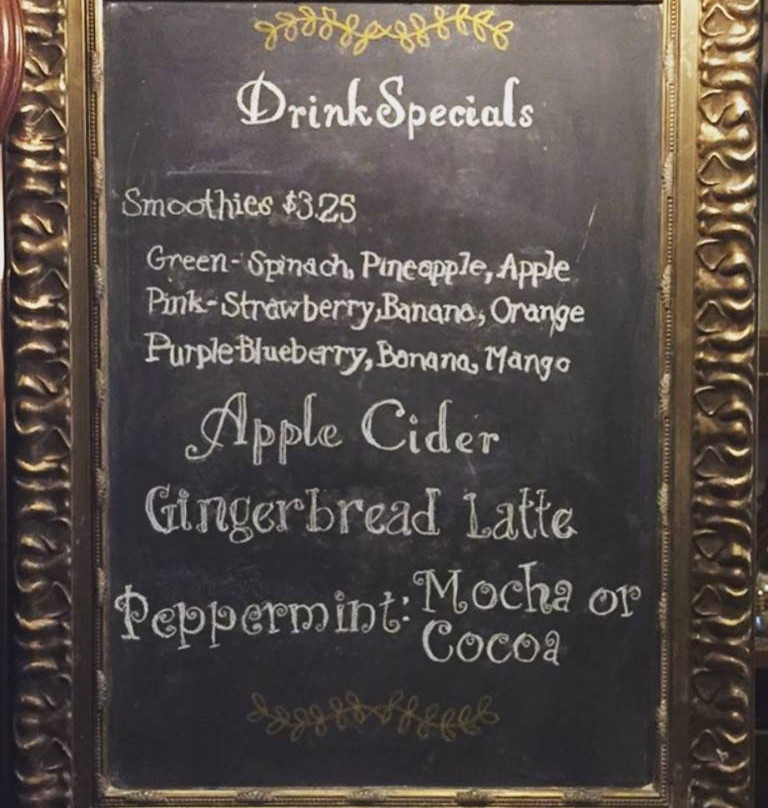 Drink Specials
Smoothies $3.25
Green- Spinach, Pineapple, Apple
Pink- Strawberry, Banana, Orange
Purple-Blueberry, Banana, Mango
Apple Cider
Gingerbread Latte
Peppermint: Mocha or
Cocoa